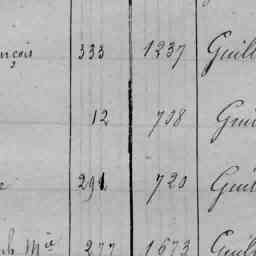 nçois 333 1237 Guil
12 708 Gui
291 720 Guil
Mie 277 1673 Guil